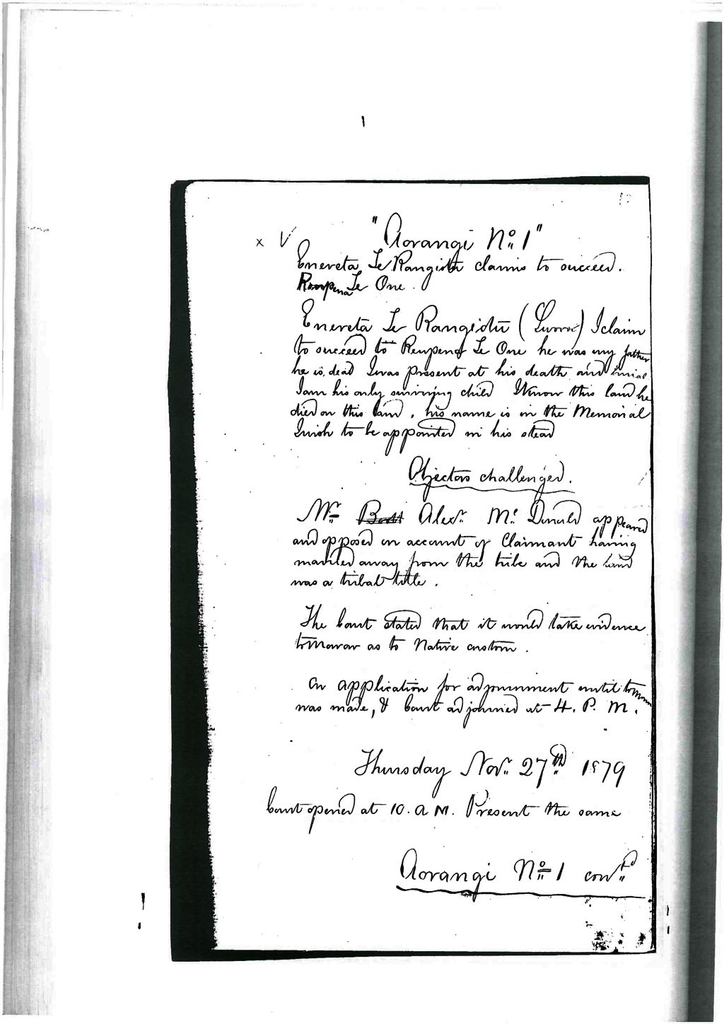 1
x V
"Aorangi No 1"
Enereta Te Rangiotu claims to succeed.
Reupena Te One.
Enereta Te Rangiotu (Sworn) I claim
to succeed to Reupena Te One he was my father
he is dead I was present at his death and burial
I am his only surviving child I know this land he
died on this land, his name is in the Memorial
I wish to be appointed in his stead
Objectors challenged.
Mr Alexr. Mc. Donald appeared
and opposed on account of Claimant having
married away from the tribe and the land
was a tribal title.
The Court stated that it would take evidence
tomorrow as to Native custom.
On application for adjournment until tomorrow
was made, & Court adjourned at 4. P. M.
Thursday Novr. 27th 1879
Court opened at 10. a M. Present the same
Aorangi No 1 contd